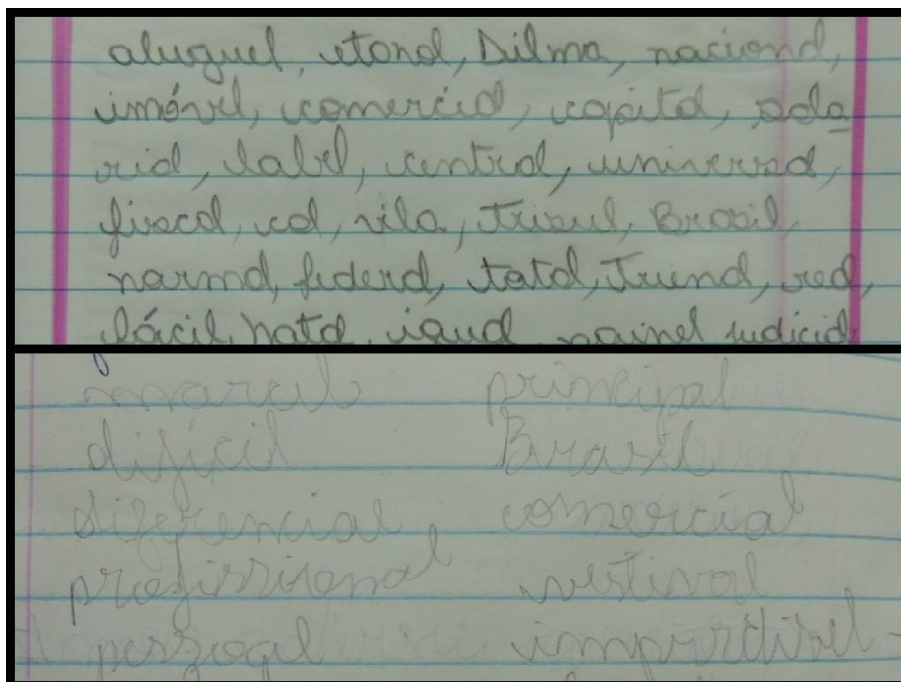 aluguel, etonal, Dilma, nacional,
imóvel, comercial, capital, sala
rial, label, central, universal,
fiscal, cal, vila, Trisul, Brasil,
normal, federal, total, Trienal, real,
fácil, Natal, igual, painel, judicial
marcil principal
difícil Brasil
diferencial, comercial
profissional vestival
pessoael imperdivel